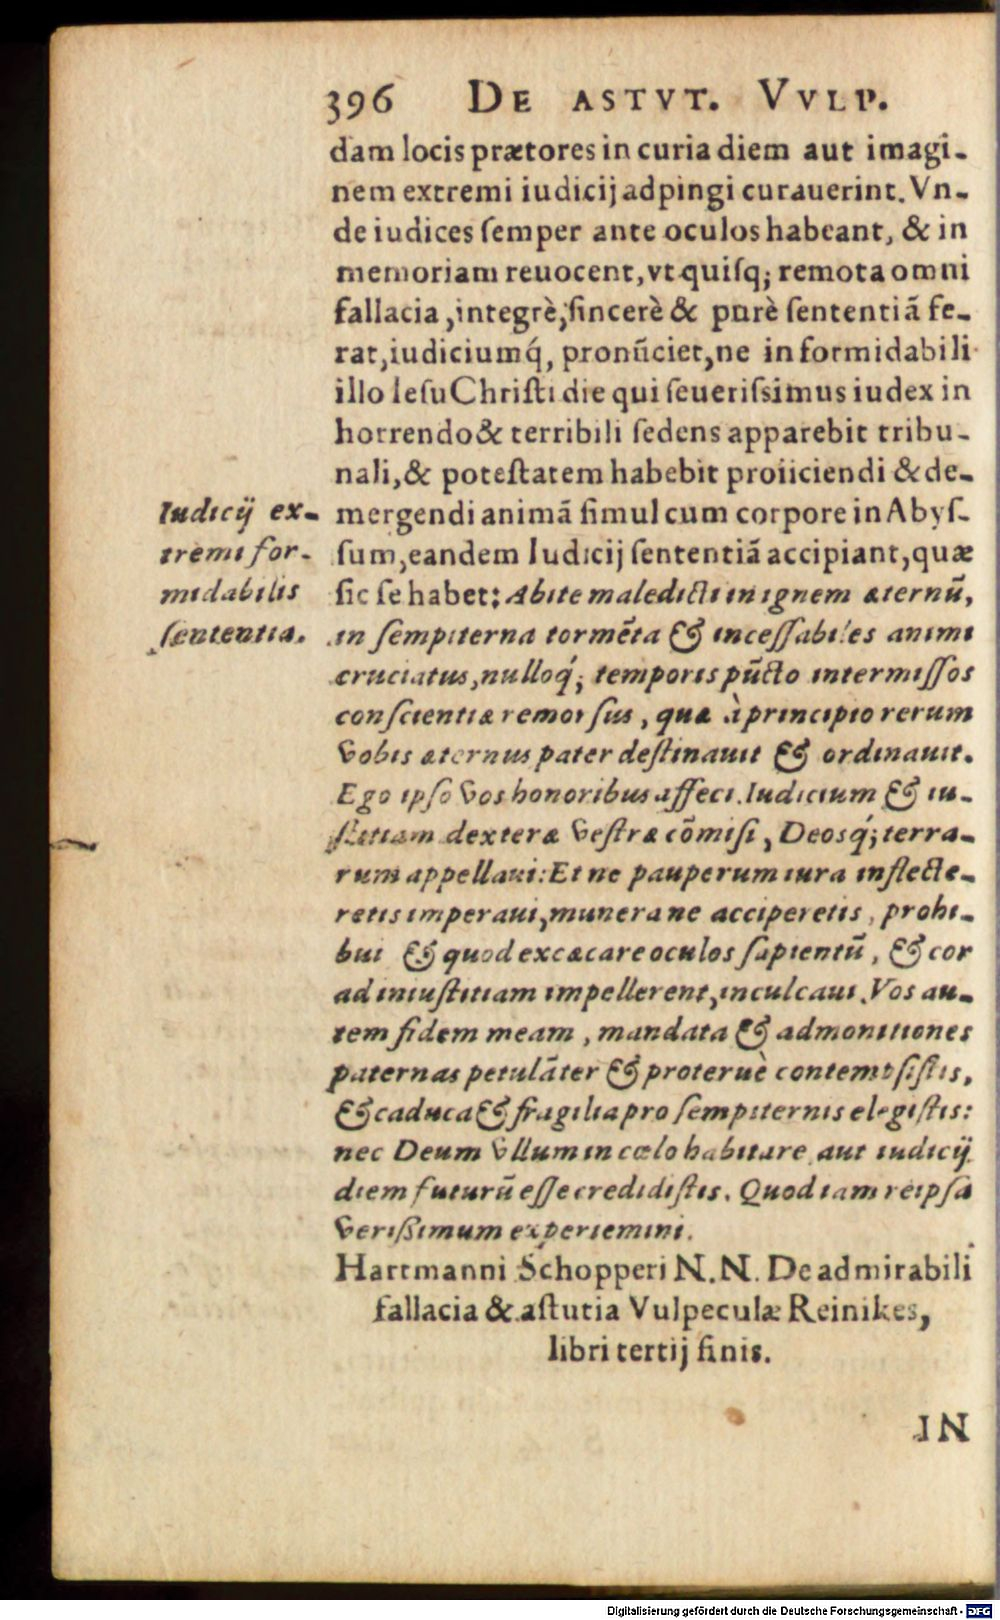 396 DE ASTVT. VVLP.
dam locis prætores in curia diem aut imagi-
nem extremi iudicij adpingi curauerint. Vn-
de iudices ſemper ante oculos habeant, & in
memoriam reuocent, vt quiſq; remota omni
fallacia, integrè, ſincerè & purè ſententiã fe-
rat, iudiciumq́, pronũciet, ne in formidabili
illo Ieſu Chriſti die qui ſeueriſsimus iudex in
horrendo & terribili ſedens apparebit tribu-
nali, & poteſtatem habebit proiiciendi & de-
mergendi animã ſimul cum corpore in Abyſ-
ſum, eandem Iudicij ſententiã accipiant, quæ
ſic ſe habet: Abite maledicti in ignem æternũ,
in ſempiterna tormẽta & inceſſabiles animi
cruciatus, nulloq́; temporis pũcto intermiſſos
conſcientiæ remorſus, quæ à principio rerum
vobis æternus pater deſtinauit & ordinauit.
Ego ipſo vos honoribus affeci. Iudicium & iu-
ſtitiam dexteræ veſtræ cõmiſi, Deosq́; terra-
rum appellaui: Et ne pauperum iura inflecte-
retis imperaui, munera ne acciperetis, prohi-
bui & quod excæcare oculos ſapientũ, & cor
ad iniuſtitiam impellerent, inculcaui. Vos au-
tem fidem meam, mandata & admonitiones
paternas petulãter & proteruè contempſiſtis,
& caduca & fragilia pro ſempiternis elegiſtis:
nec Deum vllum in cœlo habitare aut iudicij
diem futurũ eſſe credidiſtis. Quod iam reipſa
veriſsimum experiemini.
Iudicij ex-
tremi for-
midabilis
ſententia.
Hartmanni Schopperi N. N. De admirabili
fallacia & aſtutia Vulpeculæ Reinikes,
libri tertij finis.
IN
Digitalisierung gefördert durch die Deutsche Forschungsgemeinschaft - DFG